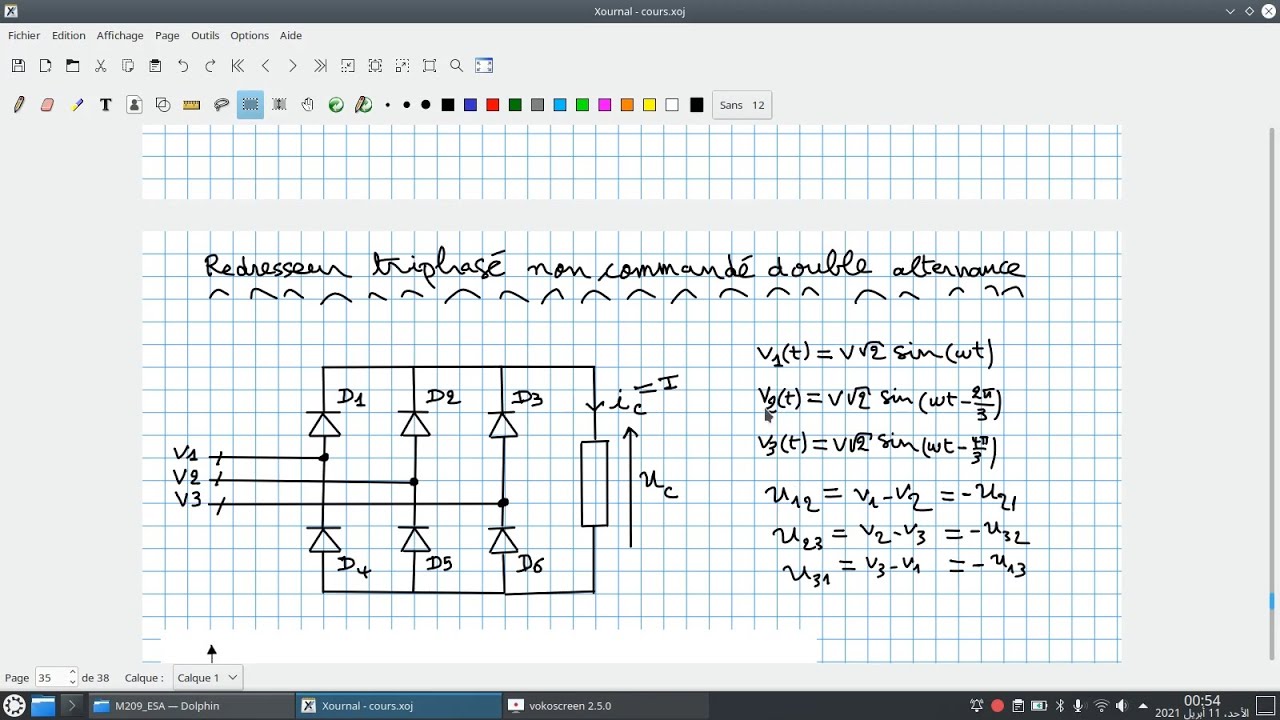 Xournal - cours.xoj
Fichier Edition Affichage Page Outils Options Aide
Sans 12
Redresseur triphasé non commandé double alternance
D1 D2 D3
ic = I
V1
V2
V3
uc
D4 D5 D6
v1(t) = V√2 sin(ωt)
v2(t) = V√2 sin(ωt - 2π/3)
v3(t) = V√2 sin(ωt - 4π/3)
u12 = v1 - v2 = - u21
u23 = v2 - v3 = - u32
u31 = v3 - v1 = - u13
Page 35 de 38 Calque : Calque 1
M209_ESA — Dolphin
Xournal - cours.xoj
vokoscreen 2.5.0
00:54
الأحد، 11 أبريل 2021